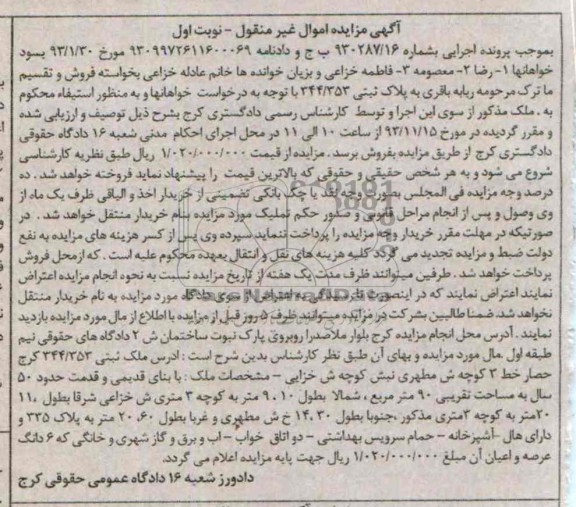 آگهی مزایده اموال غیر منقول - نوبت اول
بموجب پرونده اجرایی بشماره ۹۳۰۲۸۷/۱۶ ب ج و دادنامه ۹۳۰۹۹۷۲۶۱۱۶۰۰۰۶۹ مورخ ۹۳/۱/۳۰ بسود
خواهانها ۱- رضا ۲- معصومه ۳- فاطمه خزاعی و بزیان خوانده ها خانم عادله خزاعی بخواسته فروش و تقسیم
ما ترک مرحومه ربابه باقری به پلاک ثبتی ۳۴۴/۳۵۳ با توجه به درخواست خواهانها و به منظور استیفاء محکوم
به . ملک مذکور از سوی این اجرا و توسط کارشناس رسمی دادگستری کرج بشرح ذیل توصیف و ارزیابی شده
و مقرر گردیده در مورخ ۹۳/۱۱/۱۵ از ساعت ۱۰ الی ۱۱ در محل اجرای احکام مدنی شعبه ۱۶ دادگاه حقوقی
دادگستری کرج از طریق مزایده بفروش برسد . مزایده از قیمت ۱/۰۲۰/۰۰۰/۰۰۰ ریال طبق نظریه کارشناسی
شروع می شود و به هر شخص حقیقی و حقوقی که بالاترین قیمت را پیشنهاد نماید فروخته خواهد شد . ده
درصد وجه مزایده فی المجلس بطور یا چک بانکی تضمینی از خریدار اخذ و الباقی ظرف یک ماه از
وی وصول و پس از انجام مراحل قانونی و صدور حکم تملیک مورد مزایده بنام خریدار منتقل خواهد شد . در
صورتیکه در مهلت مقرر خریدار وجه مزایده را پرداخت ننماید سپرده وی پس از کسر هزینه های مزایده به نفع
دولت ضبط و مزایده تجدید می گردد کلیه هزینه های نقل و انتقال بعهده محکوم علیه است . که از محل فروش
پرداخت خواهد شد . طرفین میتوانند ظرف مدت یک هفته از تاریخ مزایده نسبت به نحوه انجام مزایده اعتراض
نمایند اعتراض نمایند که در اینصورت تا رسیدگی به اعتراض از سوی دادگاه مورد مزایده به نام خریدار منتقل
نخواهد شد. ضمنا طالبین بشرکت در مزایده میتوانند ظرف ۵ روز قبل از مزایده با اطلاع از مال مورد مزایده بازدید
نمایند . آدرس محل انجام مزایده کرج بلوار ملاصدرا روبروی پارک نبوت ساختمان ش ۲ دادگاه های حقوقی نیم
طبقه اول .مال مورد مزایده و بهای آن طبق نظر کارشناس بدین شرح است : ادرس ملک ثبتی ۳۴۴/۳۵۳ کرج
حصار خط ۳ کوچه ش مطهری نبش کوچه ش خزایی - مشخصات ملک : با بنای قدیمی و قدمت حدود ۵۰
سال به مساحت تقریبی ۹۰ متر مربع ، شمالا بطول ۱۰ ، ۹ متر به کوچه ۳ متری ش خزاعی شرقا بطول ۱۱،
۲۰متر به کوچه ۳متری مذکور ،جنوبا بطول ۳۰ ،۱۴ خ ش مطهری و غربا بطول ۶۰، ۲۰ متر به پلاک ۳۳۵ و
دارای هال -آشپزخانه - حمام سرویس بهداشتی - دو اتاق خواب - اب و برق و گاز شهری و خانگی که ۶ دانگ
عرصه و اعیان آن مبلغ ۱/۰۲۰/۰۰۰/۰۰۰ ریال جهت پایه مزایده اعلام می گردد.
دادورز شعبه ۱۶ دادگاه عمومی حقوقی کرج